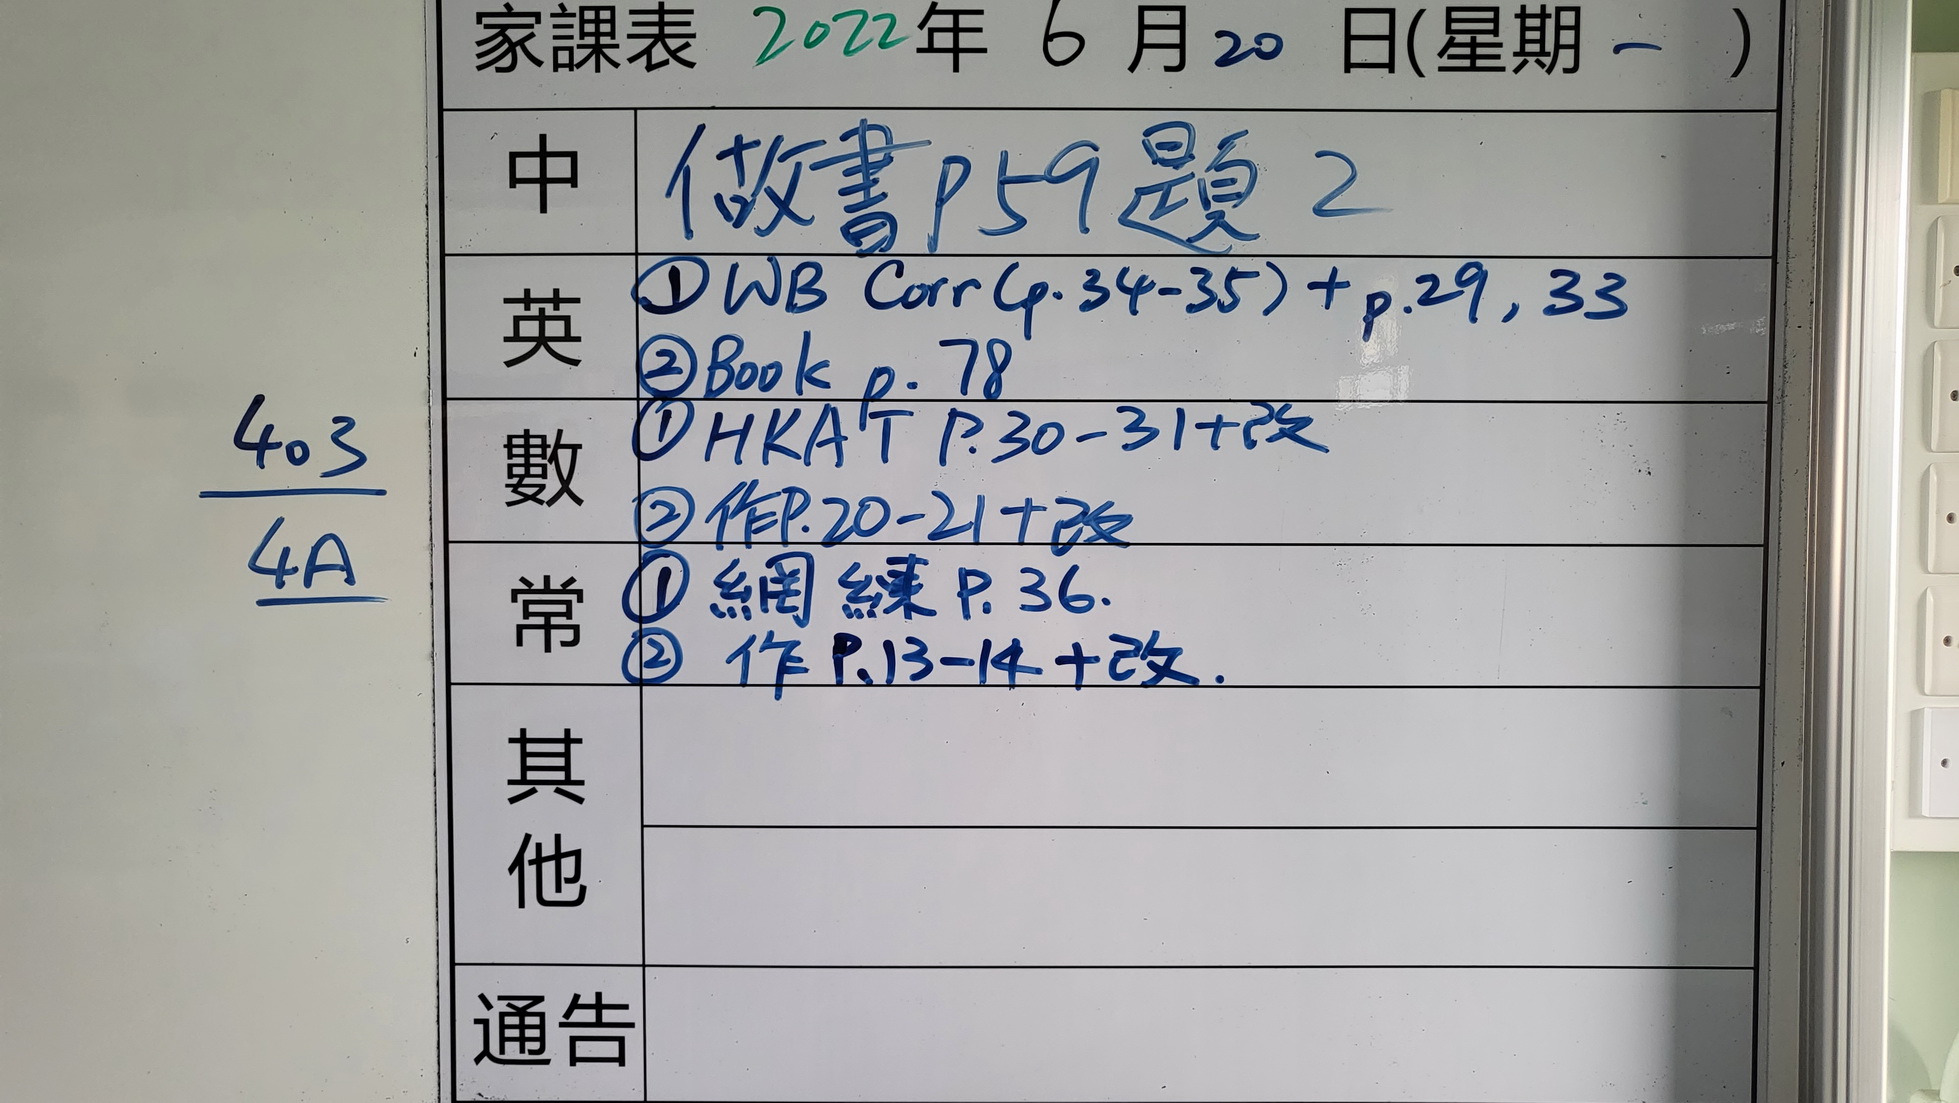 家課表 2022年 6 月 20 日(星期 一 )
中 做書p59題2
英 ①WB Corr(p.34-35)+p.29, 33
②Book p. 78
數 ①HKAT P.30-31+改
②作P.20-21+改
常 ①網練P.36.
②作P.13-14+改.
其他
通告
403
4A